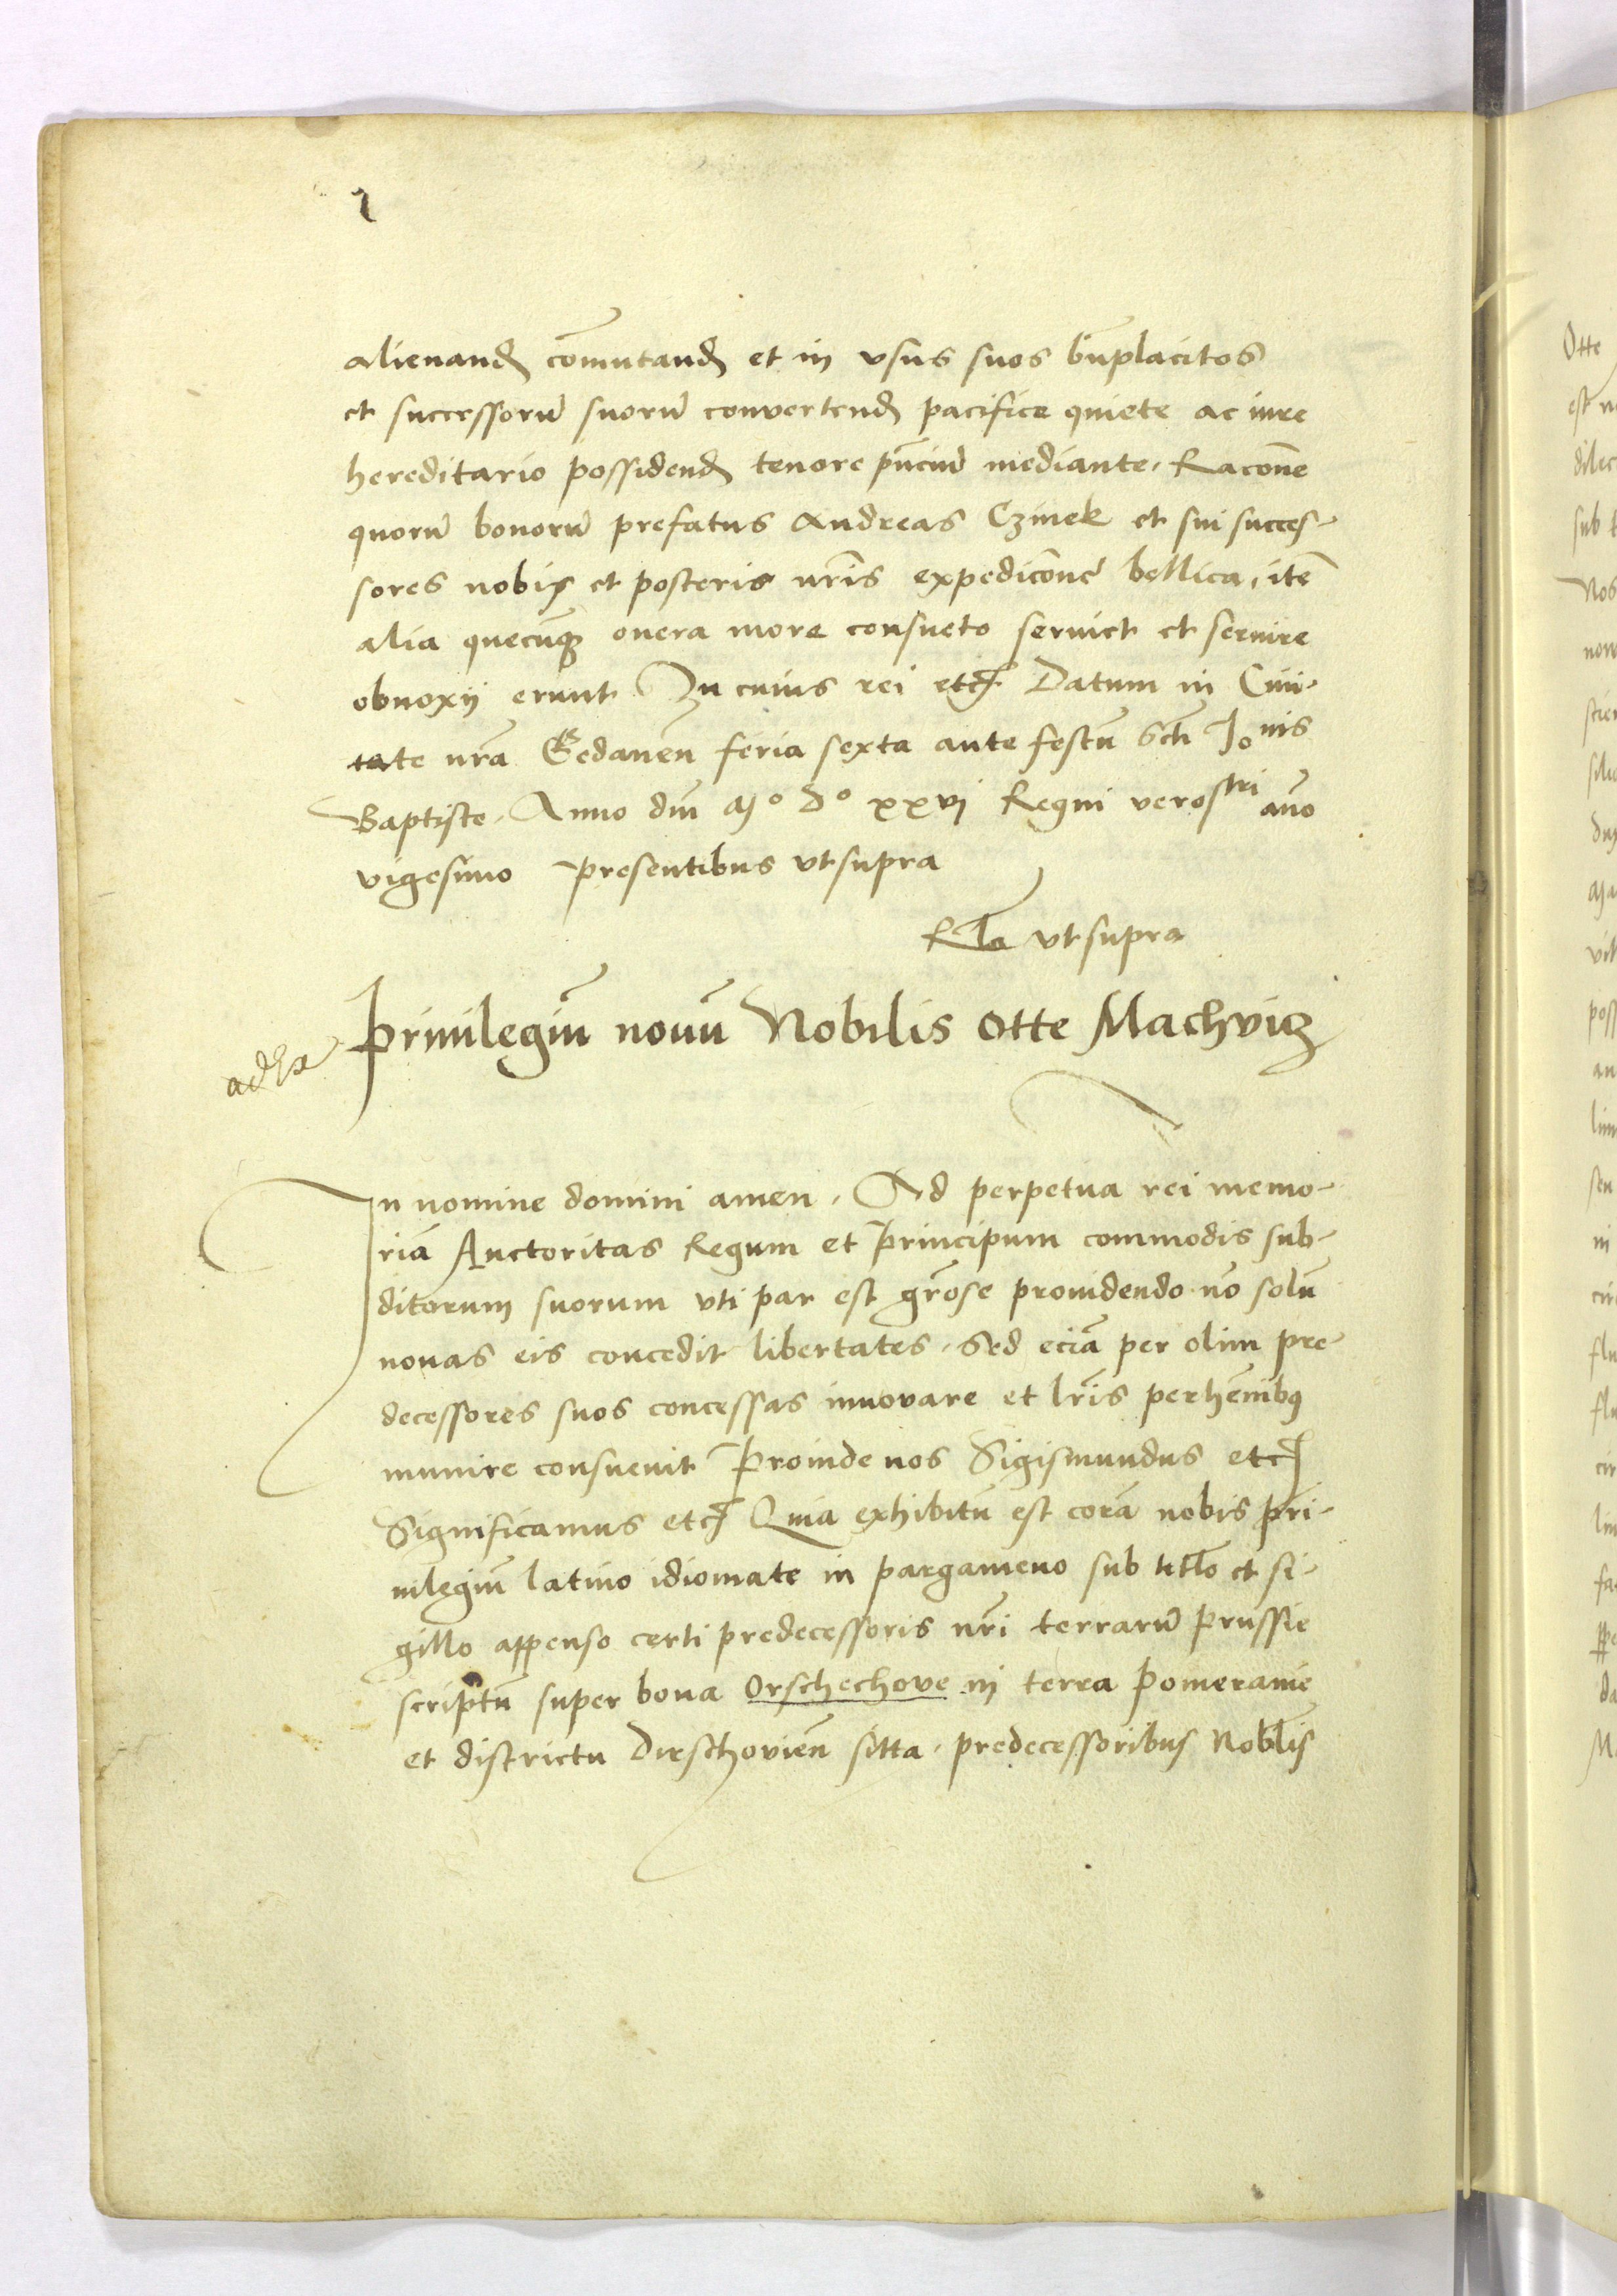 alienand comutand et in vsus suos bnplacitos
et successoru suoru convertend pacifice quiete ac iure
hereditario possidend tenore pncium mediante, Racone
quoru bonoru prefatus Andreas Czinek et sui succes-
sores nobis et posteris nris expedicone bellica, ite
alia quecuq onera more consueto seruiet et seruire
obnoxij erunt In cuius rei etc Datum in Ciui-
tate nra Gedanen feria sexta ante festu Scti Jonis
Baptiste, Anno dni Mº dº xxvi Regni vero nostri ano
vigesimo presentibus vt supra
Rla vt supra
Priuilegiu nouu Nobilis Otte Machviz
In nomine domini amen, Ad perpetua rei memo-
ria Auctoritas Regum et Principum commodis sub-
ditorum suorum vti par est grose prouidendo no solu
nouas eis concedit libertates, Sed ecia per olim pre-
decessores suos concessas innovare et lris perhenibus
munire consueuit Proinde nos Sigismundus etc
Significamus etc Quia exhibitu est cora nobis pri-
uilegiu latino idiomate in pargameno sub titlo et si-
gillo appenso certi predecessoris nri terraru Prussie
scriptu super bona Orschechove in terra Pomeranie
et districtu Dirschovien sitta, predecessoribus Noblis